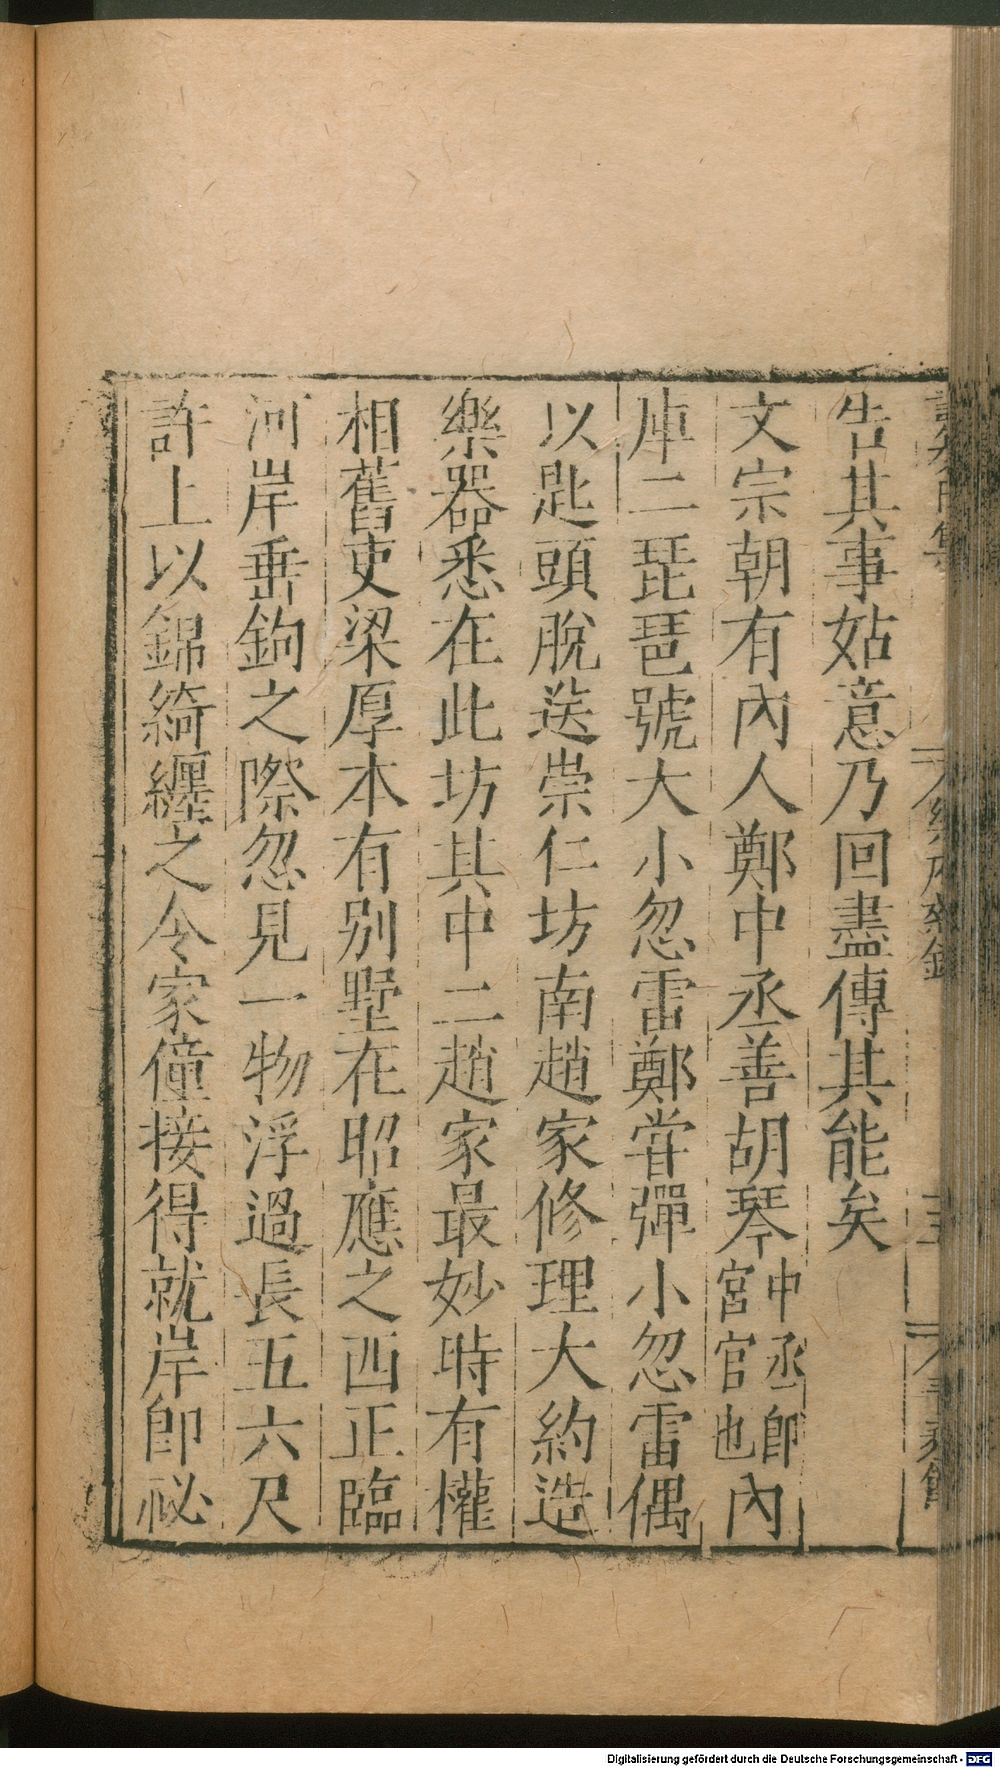 告其事姑意乃回盡傳其能矣
文宗朝有內人鄭中丞善胡琴中丞即宮官也內
庫二琵琶號大小忽雷鄭甞彈小忽雷偶
以匙頭脫送崇仁坊南趙家修理大約造
樂器悉在此坊其中二趙家最妙時有權
相舊吏梁厚本有別墅在昭應之西正臨
河岸垂鉤之際忽見一物浮過長五六尺
許上以錦綺纏之令家僮接得就岸即祕
Digitalisierung gefördert durch die Deutsche Forschungsgemeinschaft - DFG